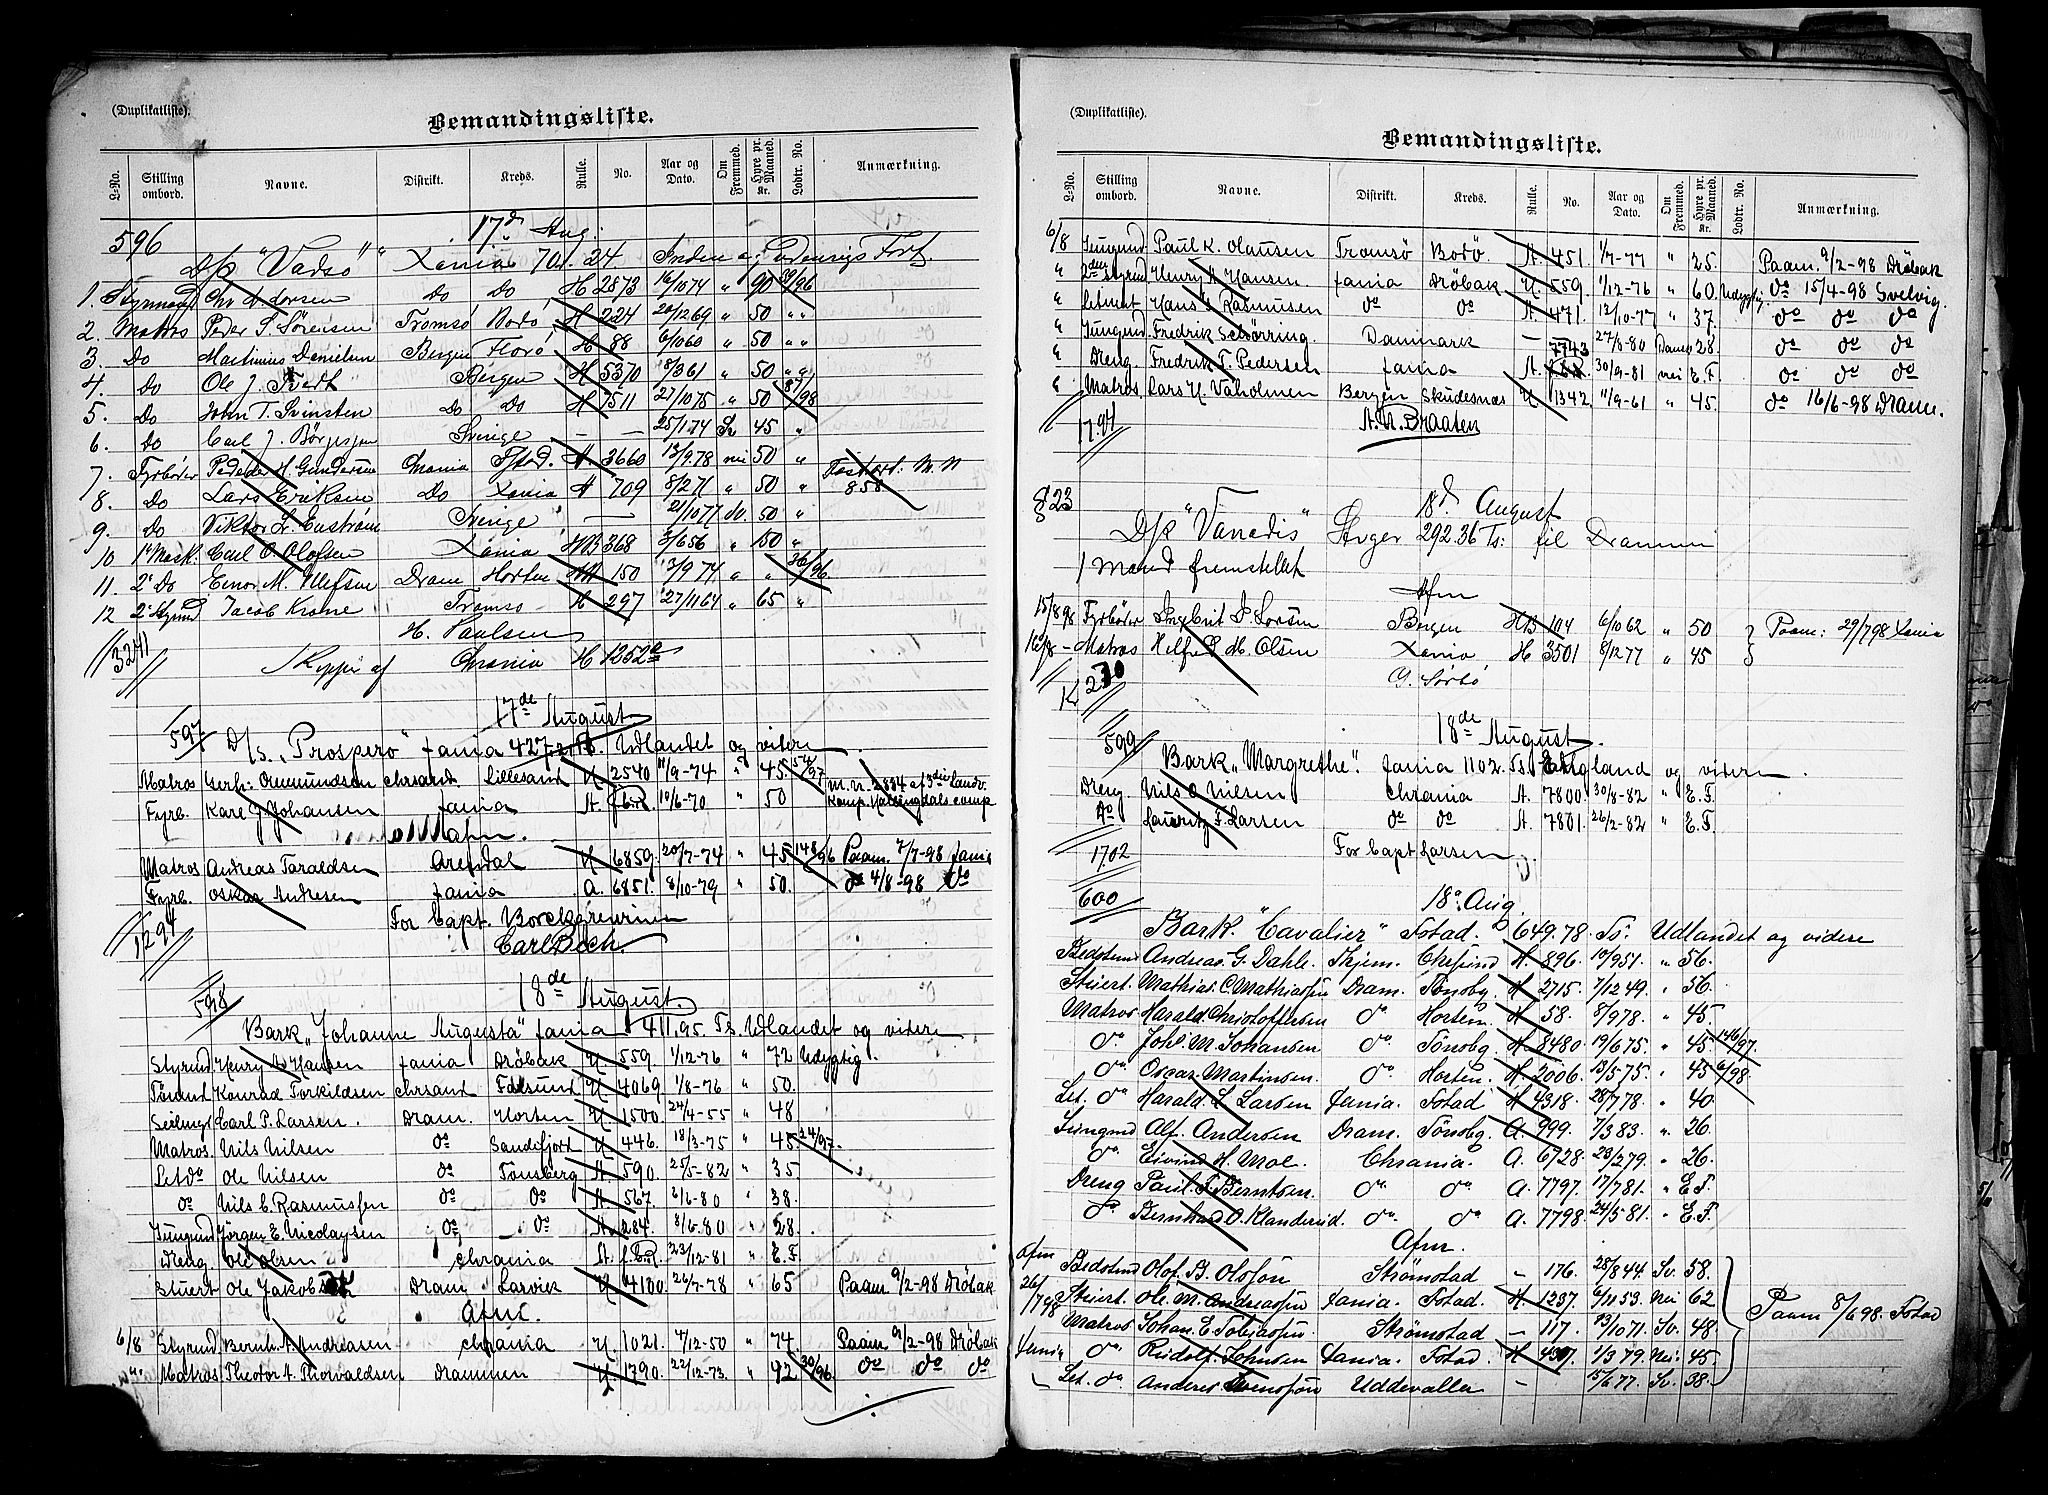 (Duplikatliste).
Bemandingsliste.
L-No. Stilling ombord. Navne. Distrikt. Kreds. Rulle. No. Aar og Dato. Om Fremmed. Hyre pr. Maaned. Kr. Lodtr. No. Anmærkning.
596 17d Aug:
D/s "Vadsö" Xania 701.24 Inden og Udenrigs Fart.
1. Styrmand Do Do H 2873 16/10 74 " 90 39/96
2. Matros Peder S. Sörensen Tromsö Bodö H 224 20/12 69 " 50 " "
3. Do Martinius Danielsen Bergen Florö H 88 6/10 60 " 50 " "
4. Do Ole J. Tvedt Bergen H 5370 18/3 61 " 50 " "
5. Do John T. Svinsten Do Do H 7511 27/10 75 " 50 87/98
6. Do Carl J. Börjesson Sverige — — 25/1 74 Sv 45 "
7. Fyrböter Peder H. Gundersen Chrania Fstad. A 3660 13/9 78 nei 50 "
8. Do Lars Eriksen Do Xania A 709 8/2 71 " 50 " 858
9. Do Viktor L. Enström Sverige — 21/10 77 sv. 50 "
10 1e Mask. Carl O. Olofsen Xania HB 368 3/6 56 " 150 "
11. 2e Do Einar M. Ellefsen Dram Horten HA 150 13/9 74 " " 36/96
12 2e Styrmd Jacob Krane Tromsö H 297 27/11 64 " 65 "
H. Paulsen
3271 Skipper af Chrania H 1252a
17de August
597 D/s. "Prospero" Xania 427.28. Udlandet og videre.
Matros Gerh: Ommundsen Chrsand. Lillesand H 2540 11/9-74 " 45. 54/97 M.N. 2884 af 3die Landv.
Fyrb. Karl G. Johansen Xania A. f.E.R. 10/6-70 " 50 Komp. Hallingdals Comp
Afm.
Matros Andreas Taraldsen Arendal H 6859. 20/7-74 " 45 148/96 Paam. 7/7-98 Xania
Fyrb. Oskar Andresen Xania A. 6851. 8/10-79 " 50. do 4/8-98 do
For Capt. Borchgrevink
1294 Carl Bech.
598 18de August
Bark "Johanne Augusta" Xania 411.95. Ts. Udlandet og videre
Styrmd Henry A Hansen Xania Dröbak H. 559. 1/12-76 " 72 Udygtig.
Tömmt Konrad Torkildsen Chrsand Farsund H 4069. 1/8-76 " 50.
Seilmgt Carl P. Larsen. Dram. Horten H 1500. 24/4-55 " 48
Matros Nils Nilsen do Sandefjord H. 446. 18/3-75 " 45 24/97.
Letdo Ole Nilsen do Tönsberg A. 590. 25/5-82 " 35.
do Nils C. Rasmussen do do A. 567. 2/6-80 " 38.
Jungmd Jörgen E. Nicolaysen do do A. 284. 8/6-80 " 28.
Dreng. Ole Olsen Chrania A. f.E.R. 23/12-81 " E.F
Stuert Ole Jakobsen Dram Larvik H 4100. 26/7-78 " 65 Paam 9/2-98 Dröbak
Afm.
6/8 Styrmd Bernh. A. Andreasen Chrania H 1021. 4/12-50 " 74. Paam 9/2-98 Dröbak
" Matros Theodor A. Thorvaldsen Drammen H 1790. 22/12-73. " 42 30/96 do do do
(Duplikatliste).
Bemandingsliste.
L-No. Stilling ombord. Navne. Distrikt. Kreds. Rulle. No. Aar og Dato. Om Fremmed. Hyre pr. Maaned. Kr. Lodtr. No. Anmærkning.
6/8 Jungmd Paul K. Olausen Tromsö Bodö A. 451. 1/7-77 " 25. Paam. 9/2-98 Dröbak
" 2den Styrmd Henry A Hansen Xania Dröbak H. 559. 1/12-76 " 60. Udygtig do 15/4-98 Svelvig.
" Letmat Hans G Rasmussen do do A. 471. 12/10-77 " 37. do do do
" Jungmd Fredrik Schörring. Danmark — 27/8-80 Dansk 28. do do do
" Dreng. Fredrik T. Pedersen Xania A. 7743 30/9-81 nei E.F. do do do
" Matros Lars H. Vaholmen Bergen Skudesnæs H 1342. 11/9-61 " 45. do 16/6-98 Dram.
1797 A. M. Braaten
823 18d August
D/s "Vanadis" Svger 292.36 Ts: til Drammen
1 mand fremstillet
Afm
15/8 98 Fyrböter Bergen HB 104 6/10 62 " 50 Paam: 29/7 98 Xania
16/8 – Matros Helfred M. Olsen Xania H 3501 8/12 77 " 45
G. Sörbö
599 18de August.
Bark "Margrethe". Xania 1102.55. England og videre.
Dreng. Nils O Nilsen Chrania A. 7800. 30/8-82 " E.F.
do Lauritz F. Larsen do do A. 7801. 26/2-82 " E.F.
1702 For Capt Larsen
600 18d Aug.
Bark. "Cavalier" Fstad. 649.78. Ts. Udlandet og videre
Bedstmd Andreas G. Dahle Thjem. Chrsund H. 896. 10/9 51. " 56.
Stuert. Mathias C. Mathiassen Dram. Tönsbg. H 2715. 7/12 49. " 56.
Matros Harald Christoffersen do Horten. H 58. 8/9 78. " 45.
do. Johs. M. Johansen do. Tönsbg. H. 8480. 19/6 75. " 45. 146/97.
do. Oscar Martinsen. do. Horten. H. 2006. 13/5 75. " 45 6/98.
Let. do Harald L. Larsen Xania. Fstad H 4318. 28/7 78. " 40.
Jungmd Alf. Andersen Dram. Tönsbg. A. 999. 7/3 83. " 26.
do. Eivind H. Moe. Chrania. A. 6728. 23/2 79. " 26.
Dreng Paul F. Berntsen. do. do. A. 7797. 17/7 81. " E.F
do. Bernhard O. Klanderud. do. do A. 7798. 24/5 81. " E.F.
Afm.
Afm Bedstmd Olof B. Olsson Strömstad — 176. 28/8 44. Sv. 58.
26/7 98 Stuert. Ole M. Andreassen Xania. Fstad. H. 1237. 6/11 53. Nei 62 Paam 8/6 98. Fstad
Matros Johan E. Tobiasson. Strömstad — 117. 23/10 71. Sv. 48.
Xania do. Rudolf Johnsen Xania. Fstad. H 4507. 1/3 79. Nei. 45.
Let. do. Anders Svensson Uddevalla — 15/6 77. Sv. 38.